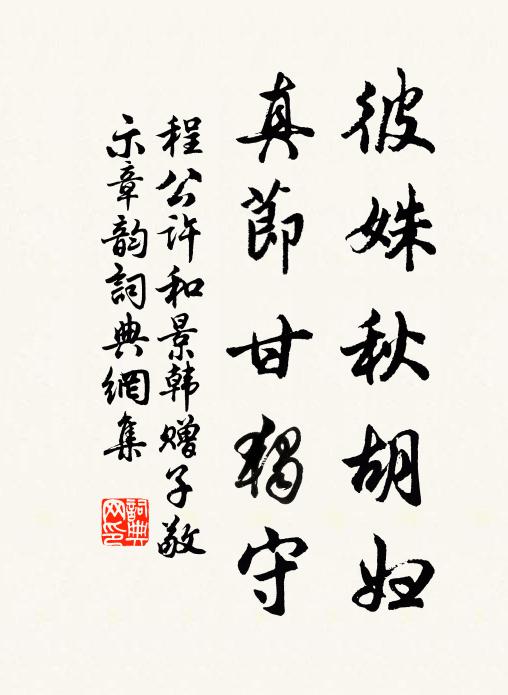 彼姝秋胡妇
真節甘獨守
程公许和景韩赠子敬
示章韵詞典網集
詞典网印